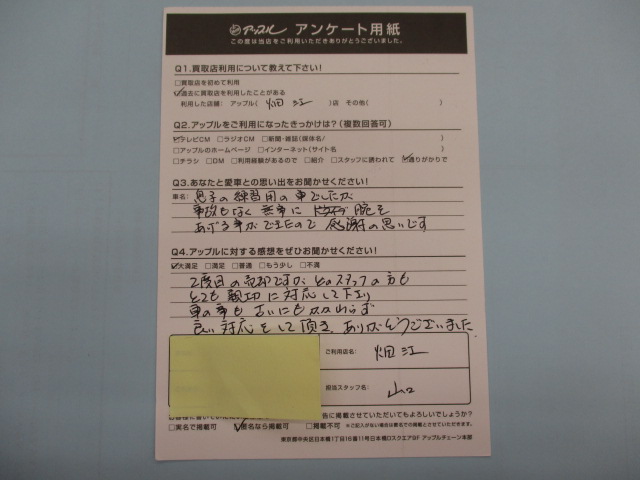 アップル アンケート用紙
この度は当店をご利用いただきありがとうございました。
Q1.買取店利用について教えて下さい!
□買取店を初めて利用
☑過去に買取店を利用したことがある
利用した店舗: アップル( 畑江 )店 その他( )
Q2.アップルをご利用になったきっかけは?(複数回答可)
☑テレビCM □ラジオCM □新聞・雑誌(媒体名/ )
□アップルのホームページ □インターネット(サイト名 )
□チラシ □DM □利用経験があるので □紹介 □スタッフに誘われて ☑通りがかりで
Q3.あなたと愛車との思い出をお聞かせください!
車名: 息子の練習用の車でしたが
事故もなく無事に 腕を
あげる事ができたので 感謝の思いです
Q4.アップルに対する感想をぜひお聞かせください!
☑大満足 □満足 □普通 □もう少し □不満
2度目の売却ですが どのスタッフの方も
とても親切に対応して下り
車の事も 古いにもかかわらず
良い対応をして頂き、ありがとうございました
ご利用店名: 畑江
担当スタッフ名: 山口
告に掲載させていただいてもよろしいでしょうか?
□実名で掲載可 ☑匿名なら掲載可 □掲載不可 ※ご記入がない場合は匿名での掲載とさせていただきます。
東京都中央区日本橋1丁目16番11号日本橋Dスクエア8F アップルチェーン本部